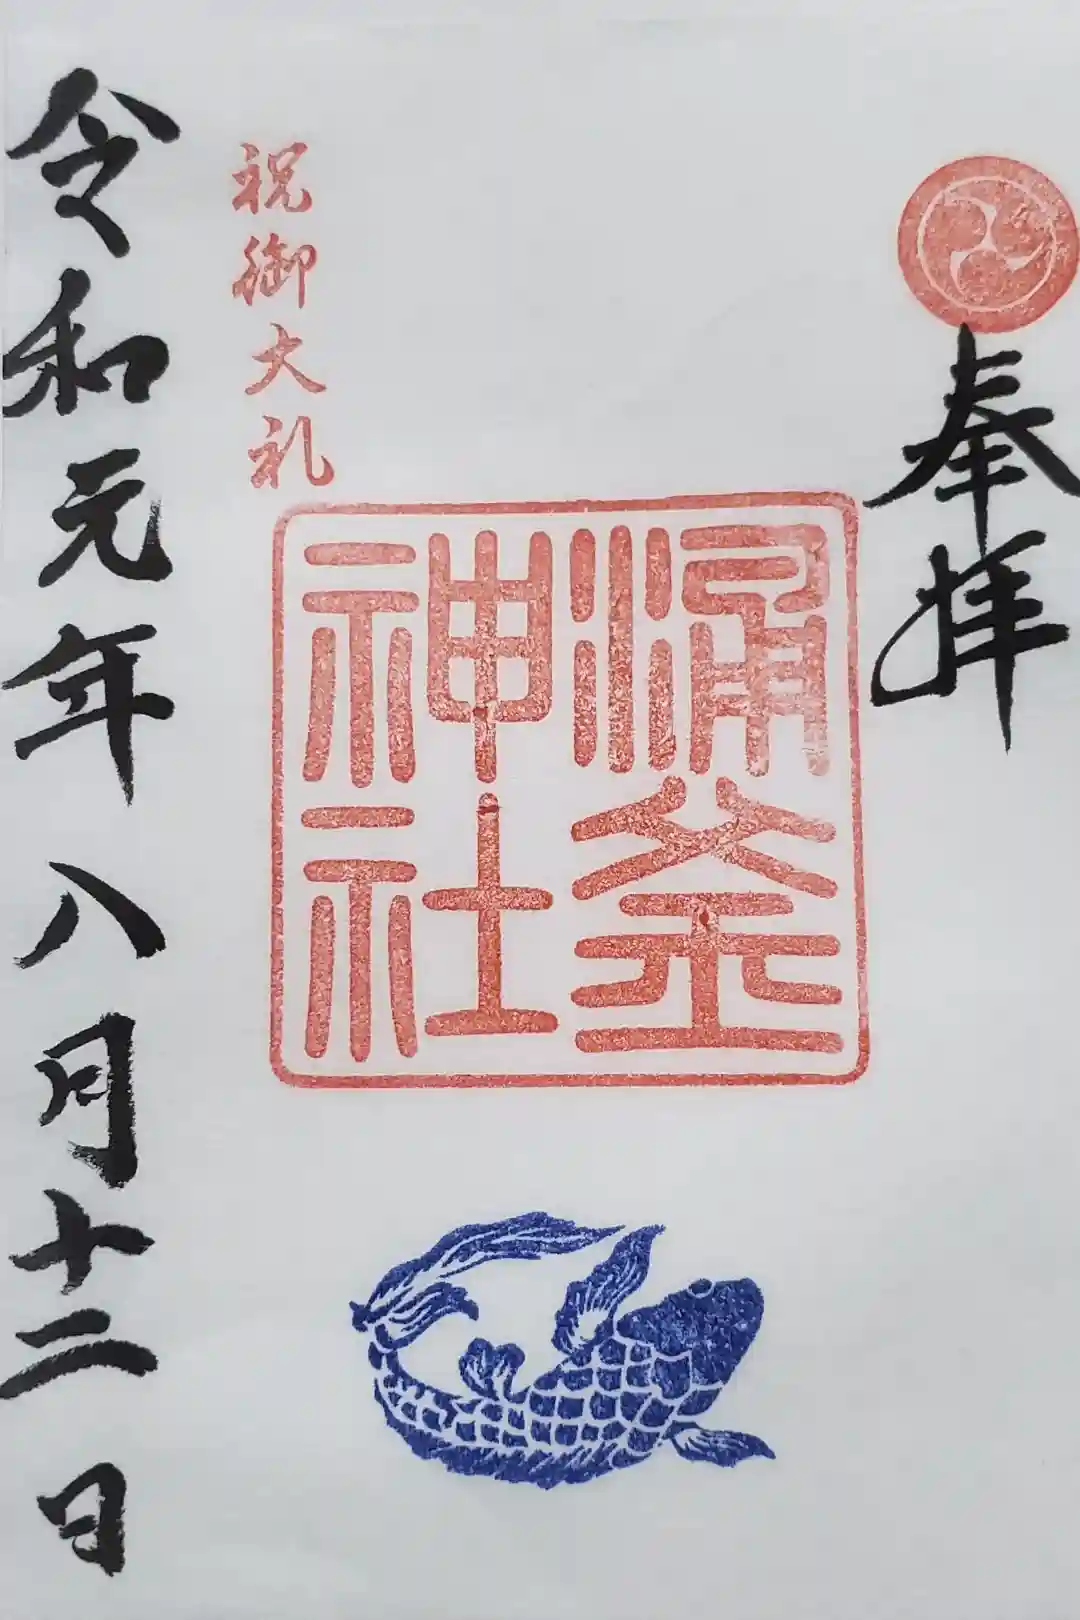 奉拝
涌釜神社
祝御大礼
令和元年八月十二日